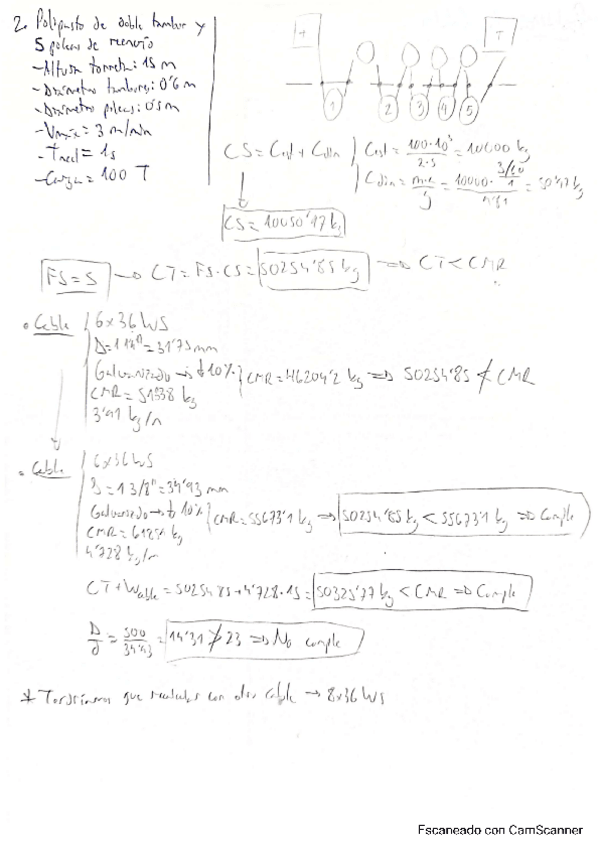 2. Polipasto de doble tambor y
5 poleas de reenvío
- Altura torreta: 15 m
- Diámetro tambores: 0'6 m
- Diámetro poleas: 0'5 m
- Vmáx = 3 m/min
- Tacel = 1s
- Carga = 100 T
T T
1 2 3 4 5
CS = Cest + Cdin
Cest = 100·10³/2·5 = 10000 kg
Cdin = m·a/g = 10000· 3/60/1 /9'81 = 50'97 kg
CS = 10050'97 kg
FS = 5 → CT = FS·CS = 50254'85 kg => CT < CMR
• Cable
6x36 WS
D = 1 1/4" = 31'75 mm
Galvanizado → ↓ 10%
CMR = 51338 kg
3'91 kg/m
CMR = 46204'2 kg => 50254'85 ≮ CMR
• Cable
6x36 WS
D = 1 3/8" = 34'93 mm
Galvanizado → ↓ 10%
CMR = kg
4'728 kg/m
CMR = 55673'1 kg → 50254'85 kg < 55673'1 kg => Cumple
CT + Wcable = 50254'85 + 4'728·15 = 50325'77 kg < CMR => Cumple
D/d = 500/34'93 = 14'31 ≯ 23 => No cumple
* Tendríamos que recalcular con otro cable → 8x36 WS
Escaneado con CamScanner